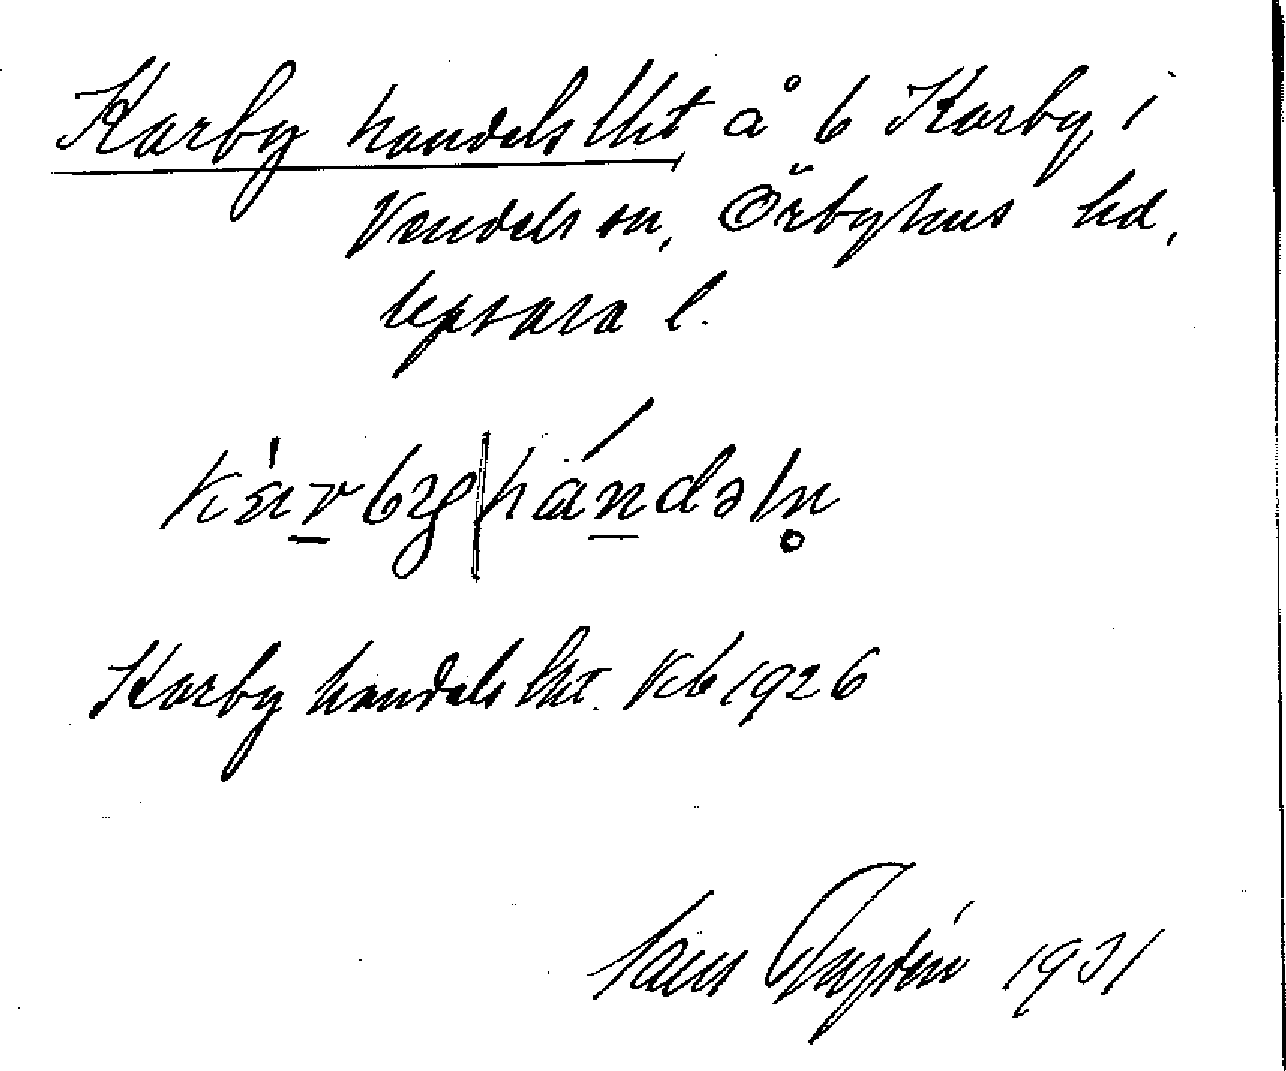 Karby handelslht å 6 Karby i
Vendels sn, Örbyhus hd,
Uppsala l.
handəln
Karby handelslht. Kb 1926
1931